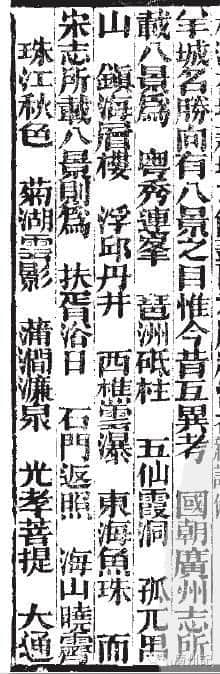 羊城名勝向有八景之目惟今昔互異考 國朝廣州志所
載八景爲 粵秀連峯 琶洲砥柱 五仙霞洞 孤兀禺
山 鎭海層樓 浮邱丹井 西樵雲瀑 東海魚珠 而
宋志所載八景則爲 扶胥浴日 石門返照 海山曉霽
珠江秋色 菊湖雲影 蒲澗濂泉 光孝菩提 大通